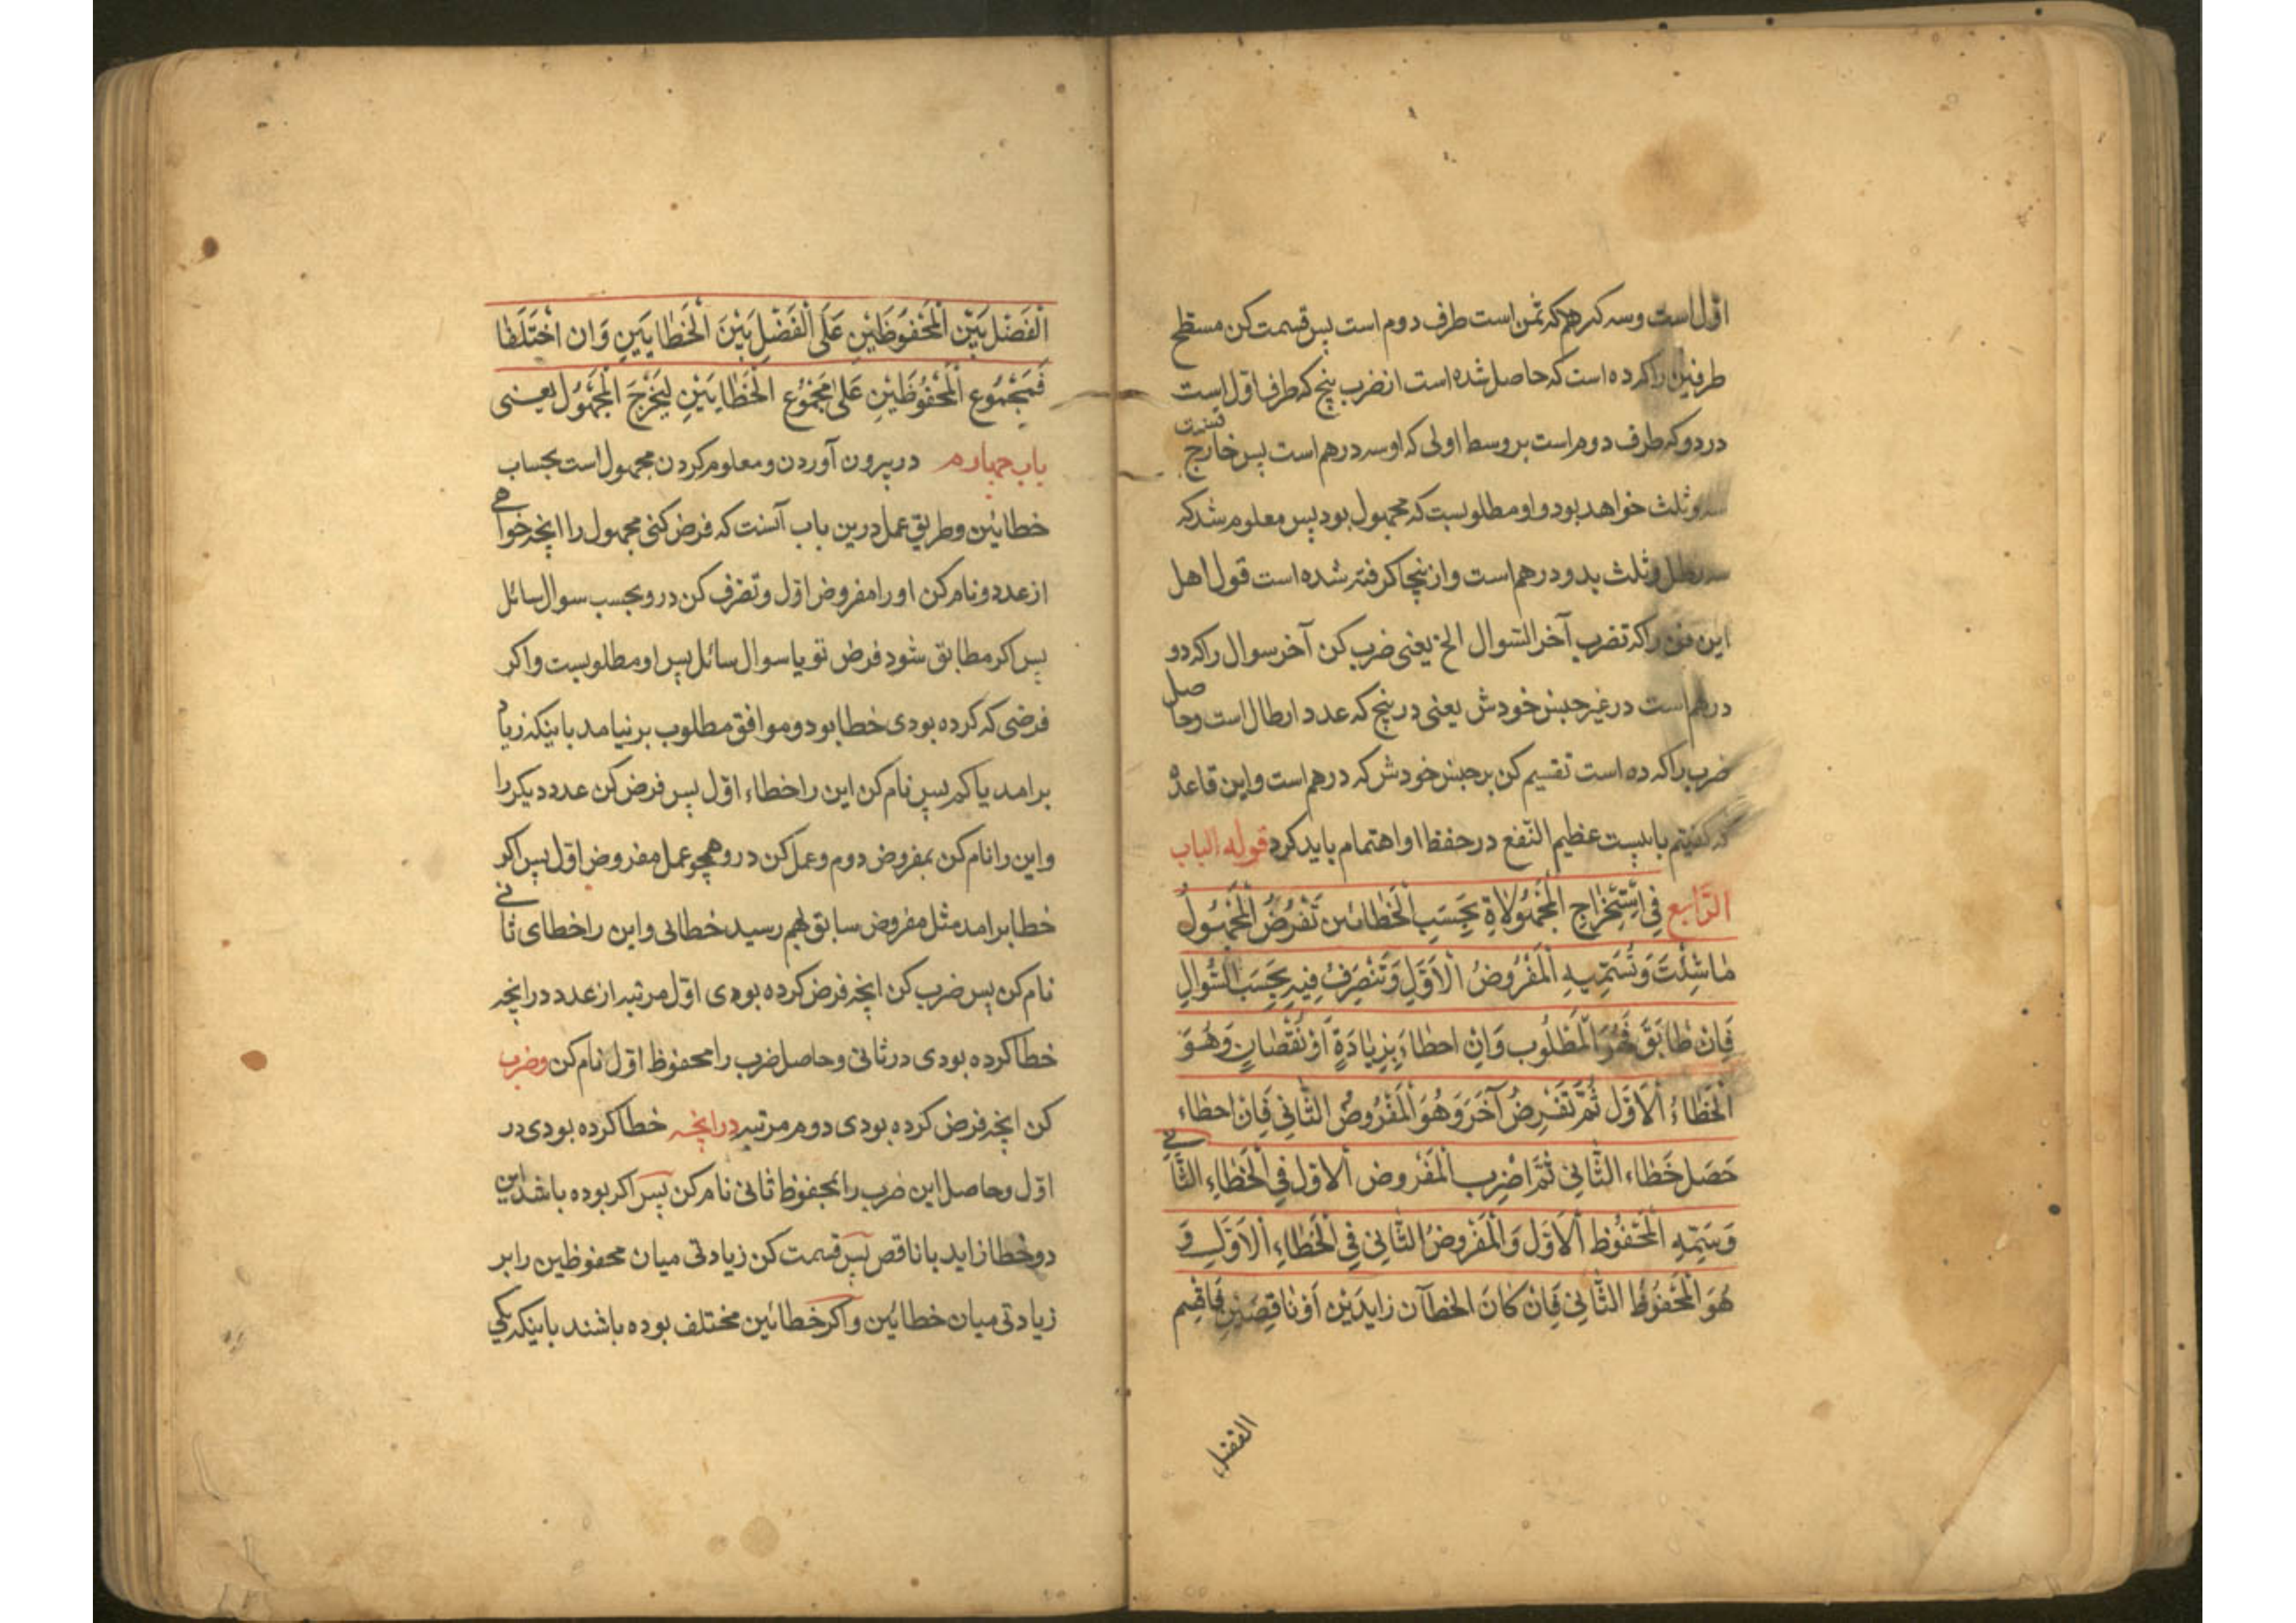 اوّل است و سه که درهم که ثمن است طرف دوم است پس قسمت کن مسطح
طرفین را که ده است که حاصل شده است از ضرب پنج که طرف اوّل است
در دو که طرف دوم است بر وسط اولی که او سه درهم است پس خارج قسمت
سه و ثلث خواهد بود و او مطلوبست که مجهول بود پس معلوم شد که
سه رطل و ثلث بدو درهم است و ازینجا کرفته شده است قول اهل
این فن را که تضرب آخر السّوال الخ یعنی ضرب کن آخر سوال را که دو
درهم است در غیر جنس خودش یعنی در پنج که عدد ارطال است و حاصل
ضرب را که ده است تقسیم کن بر جنس خودش که درهم است و این قاعده
که کفتیم بابیست عظیم النّفع در حفظ او اهتمام باید کرد قوله الباب
الرّابع فِی اسْتِخْرَاجِ الْمَجْهُولَاةِ بِحَسَبِ الْخَطَائین تَفْرُضُ الْمَجْهُولَ
مٰا شِئْتَ وَ تُسَمِّیهِ الْمَفْرُوضُ الْاَوَّلِ وَ تَنْصَرِفُ فِیهِ بِحَسَبِ السُّوالِ
فَاِنْ طٰابَقَ فَهُوَ الْمَطْلُوب وَ اِنْ اخطاءَ بِزِیٰادَةٍ اَوْ نُقْصٰانٍ وَ هُوَ
الْخَطٰاءُ الْاَوَّل ثُمَّ تَفْرِضُ آخَرَ وَ هُوَ الْمَفْرُوضُ الثّٰانِی فَاِنْ اخطاء
حَصَلَ خَطٰاء الثّٰانِی ثُمَّ اضْرِب الْمَفْرُوض الاوّل فِی الْخَطٰاءِ الثّٰانی
وَ سَمِّهِ الْمَحْفُوظ الْاَوَّل وَ الْمَفْرُوضُ الثّٰانِی فِی الْخَطٰاءِ الْاَوَّلِ وَ
هُوَ الْمَحْفُوظُ الثّٰانِی فَاِنْ کٰانَ الخطآن زایدَیْن اَوْ نٰاقِصَیْنِ فَاقْسِم
الفضل
الْفَضْلَ بَیْنَ الْمَحْفُوظَیْنِ عَلَی الْفَضْلِ بَیْنَ الْخَطٰایَیْنِ وَ ان اخْتَلَفٰا
فَمَجْمُوعِ الْمَحْفُوظَیْنِ عَلیٰ مَجْمُوع الْخَطٰایَیْنِ لِیَخْرَجَ الْمَجْهُول یعنی
باب چهارم در بیرون آوردن و معلوم کردن مجهول است بحساب
خطایین و طریق عمل درین باب آنست که فرض کنی مجهول را انچه خواهی
از عدد و نام کن او را مفروض اوّل و تصرف کن در و بحسب سوال سائل
پس اکر مطابق شود فرض تو با سوال سائل پس او مطلوبست و اکر
فرضی که کرده بودی خطا بود و موافق مطلوب بر نیامد باینکه زیاد
برامد یا کم پس نام کن این را خطاء اوّل پس فرض کن عدد دیکر را
و این را نام کن بمفروض دوم و عمل کن در و همچو عمل مفروض اوّل پس اکر
خطا برامد مثل مفروض سابق بهم رسید خطائی و این را خطای ثانی
نام کن پس ضرب کن انچه فرض کرده بودی اوّل مرتبه از عدد در انچه
خطا کرده بودی در ثانی و حاصل ضرب را محفوظ اوّل نام کن و ضرب
کن انچه فرض کرده بودی دوم مرتبه در انچه خطا کرده بودی در
اوّل و حاصل این ضرب را بمحفوظ ثانی نام کن پس اکر بوده باشد این
دو خطا زاید یا ناقص پس قسمت کن زیادتی میان محفوظین را بر
زیادتی میان خطائین و اکر خطائین مختلف بوده باشند باینکه یکی